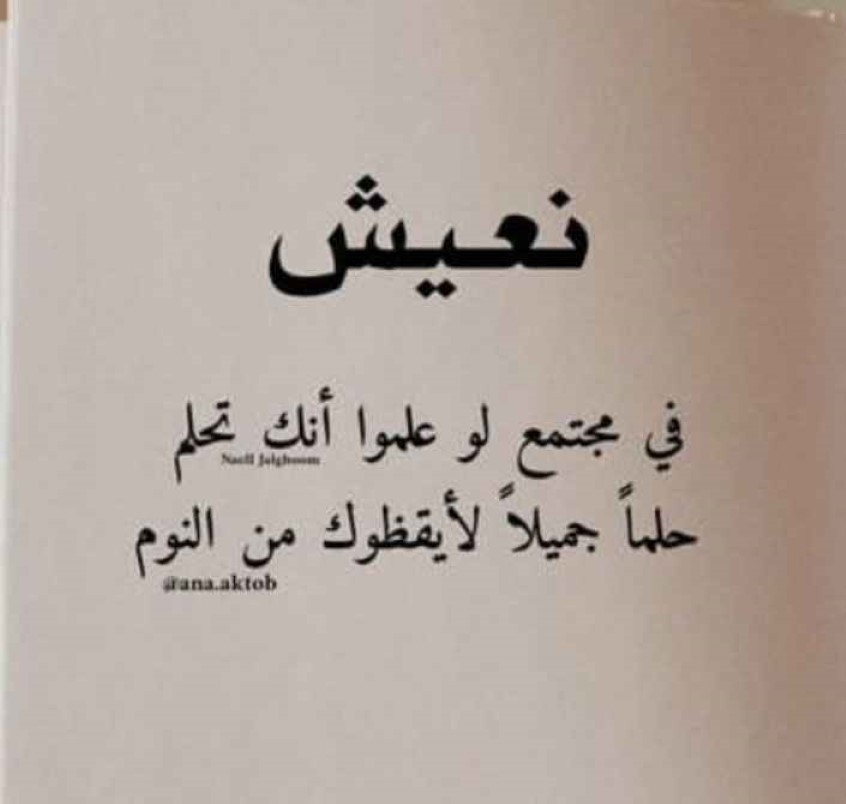 نعيش
في مجتمع لو علموا أنك تحلم
Naell Jalghoom
حلماً جميلاً لأيقظوك من النوم
@ana.aktob